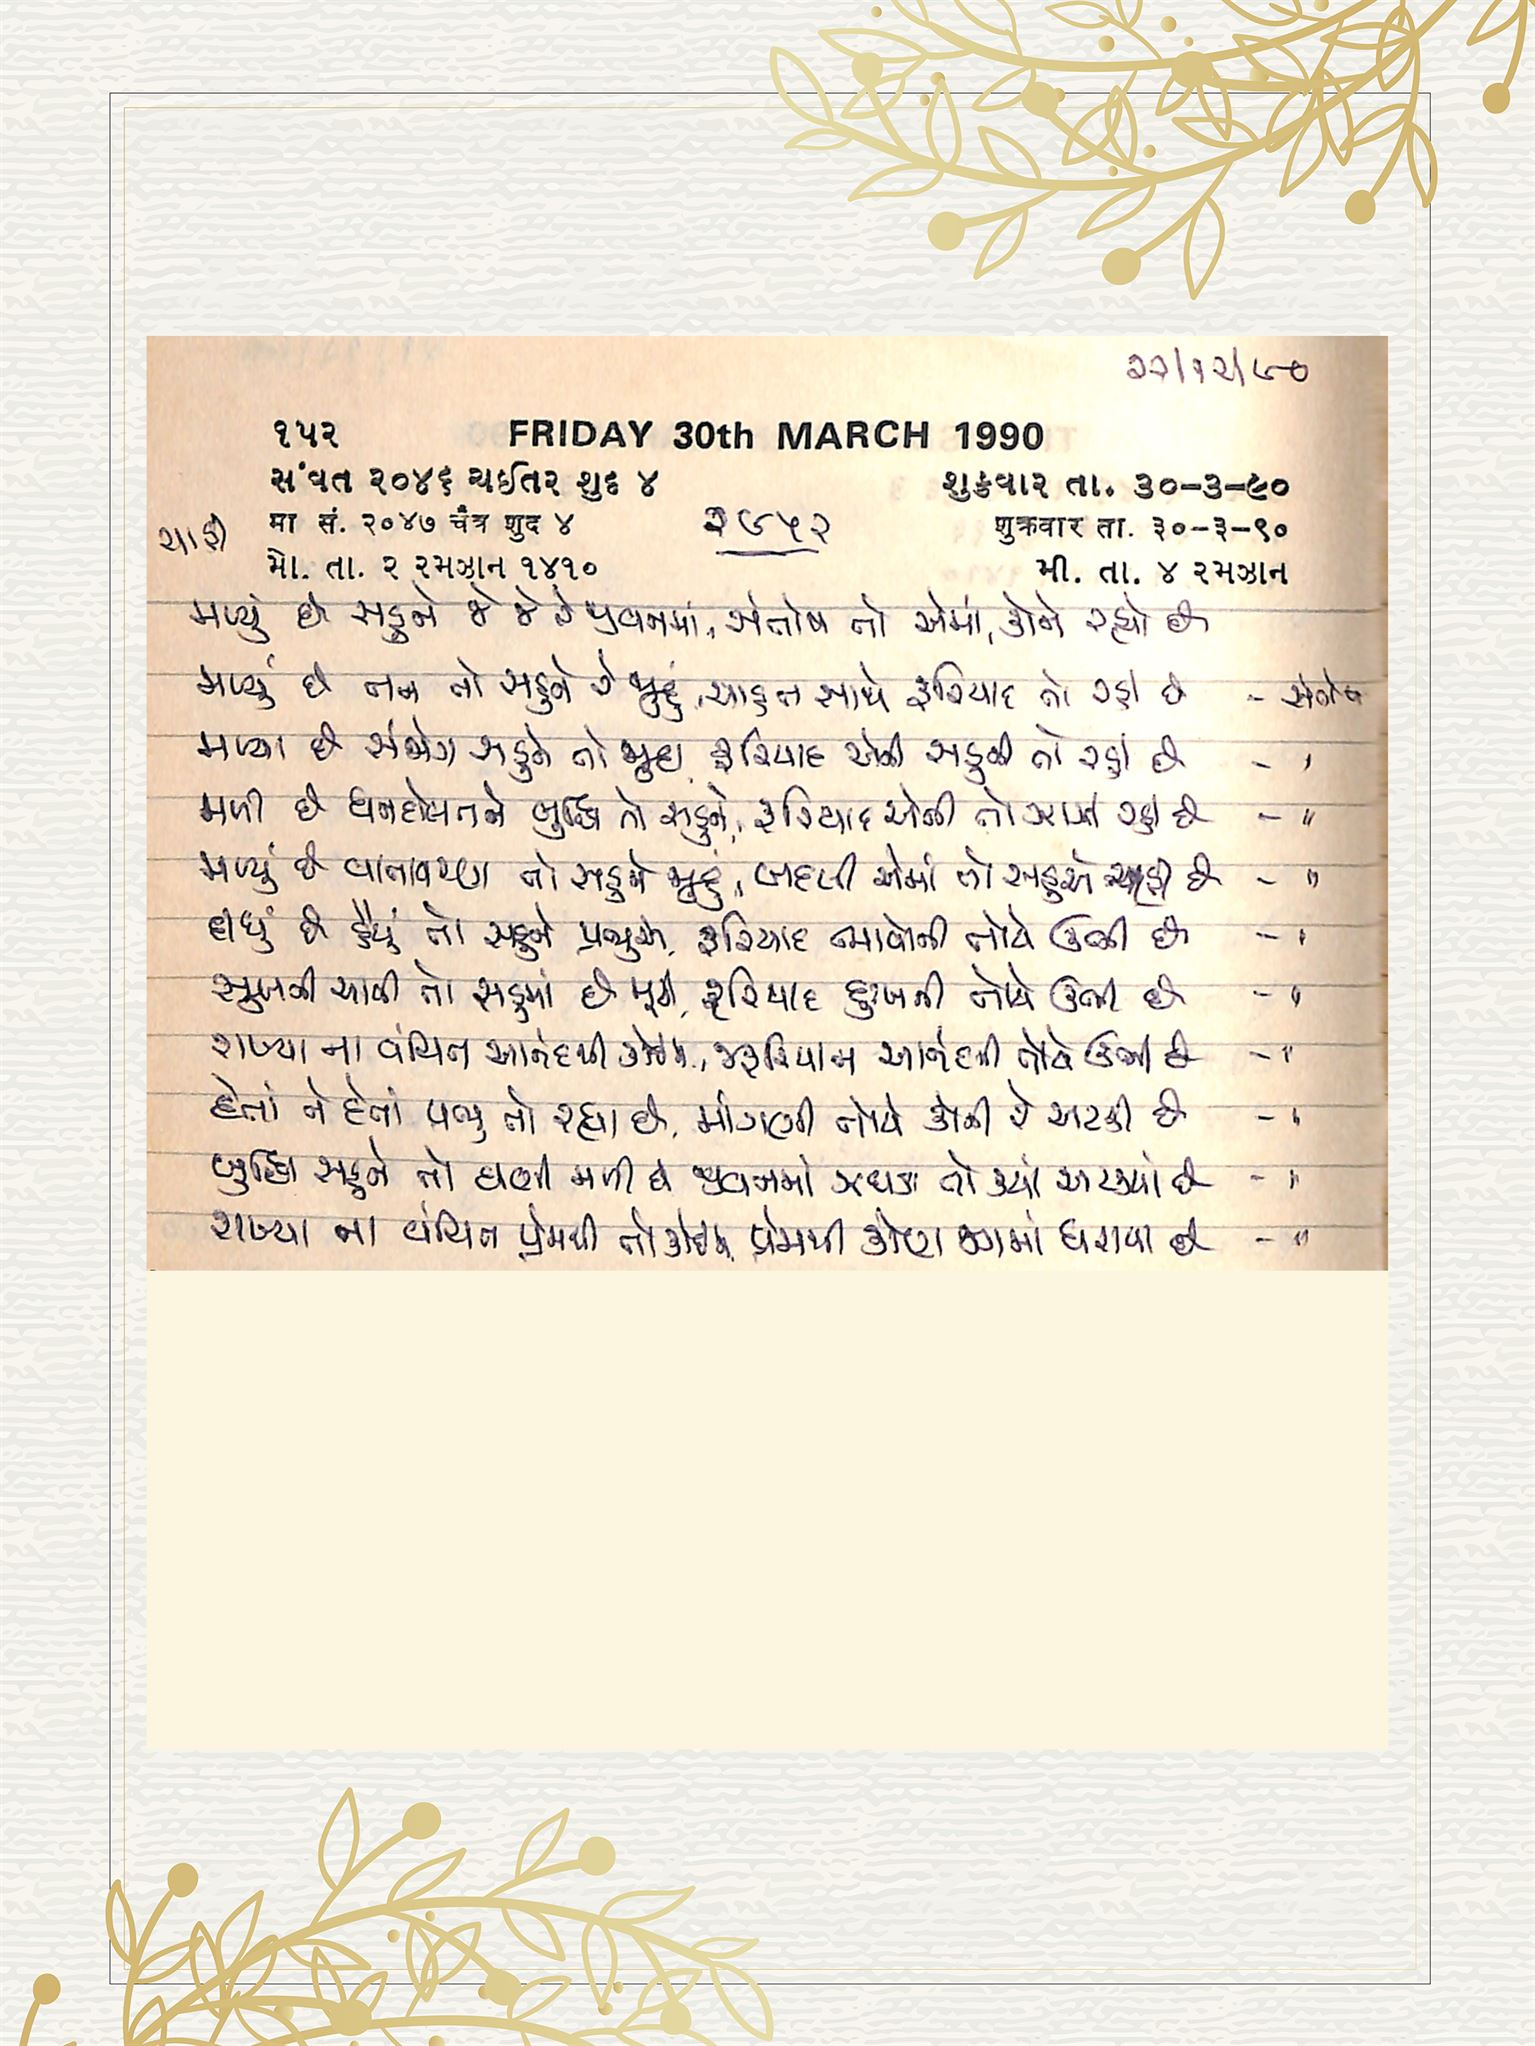 ૨૨/૧૨/૯૦
૧૫૨ FRIDAY 30th MARCH 1990
સંવત ૨૦૪૬ ચઈતર શુદ ૪ શુક્રવાર તા. ૩૦-૩-૯૦
मा सं. २०४७ चैत्र शुद ४ ૨૭૫૨ शुक्रवार ता. ३०-३-९०
મો. તા. ૨ રમઝાન ૧૪૧૦ મી. તા. ૪ રમઝાન
મળ્યું છે સહુને જે જે રે જીવનમાં, સંતોષ તો એમાં, કોને રહ્યો છે
મળ્યું છે તન તો સહુને રે જુદું, ચાહત સાથે ફરિયાદ તો રહી છે - સંતોષ
મળ્યા છે સંજોગ સહુને તો જુદા, ફરિયાદ એની સહુની તો રહી છે - "
મળી છે ધનદોલતને બુદ્ધિ તો સહુને, ફરિયાદ એની તો રહી છે - "
મળ્યું છે વાતાવરણ તો સહુને જુદું, બદલી એમાં તો સહુએ ચાહી છે - "
દીધું છે હૈયું તો સહુને પ્રભુએ, ફરિયાદ ભાવોની તોયે ઊભી છે - "
સુખની ચાવી તો સહુમાં છે મૂકી, ફરિયાદ દુઃખની તોયે ઊભી છે - "
રાખ્યા ના વંચિત આનંદથી કોઈને, ફરિયાદ આનંદની તોયે ઊભી છે - "
દેતાં ને દેતાં પ્રભુ તો રહ્યા છે, માંગણી તોયે કોની રે અટકી છે - "
બુદ્ધિ સહુને તો ઘણી મળી છે જીવનમાં ઝઘડા તો ક્યાં અટક્યાં છે - "
રાખ્યા ના વંચિત પ્રેમથી તો કોઈને પ્રેમથી કોણ જગમાં ધરાયા છે - "